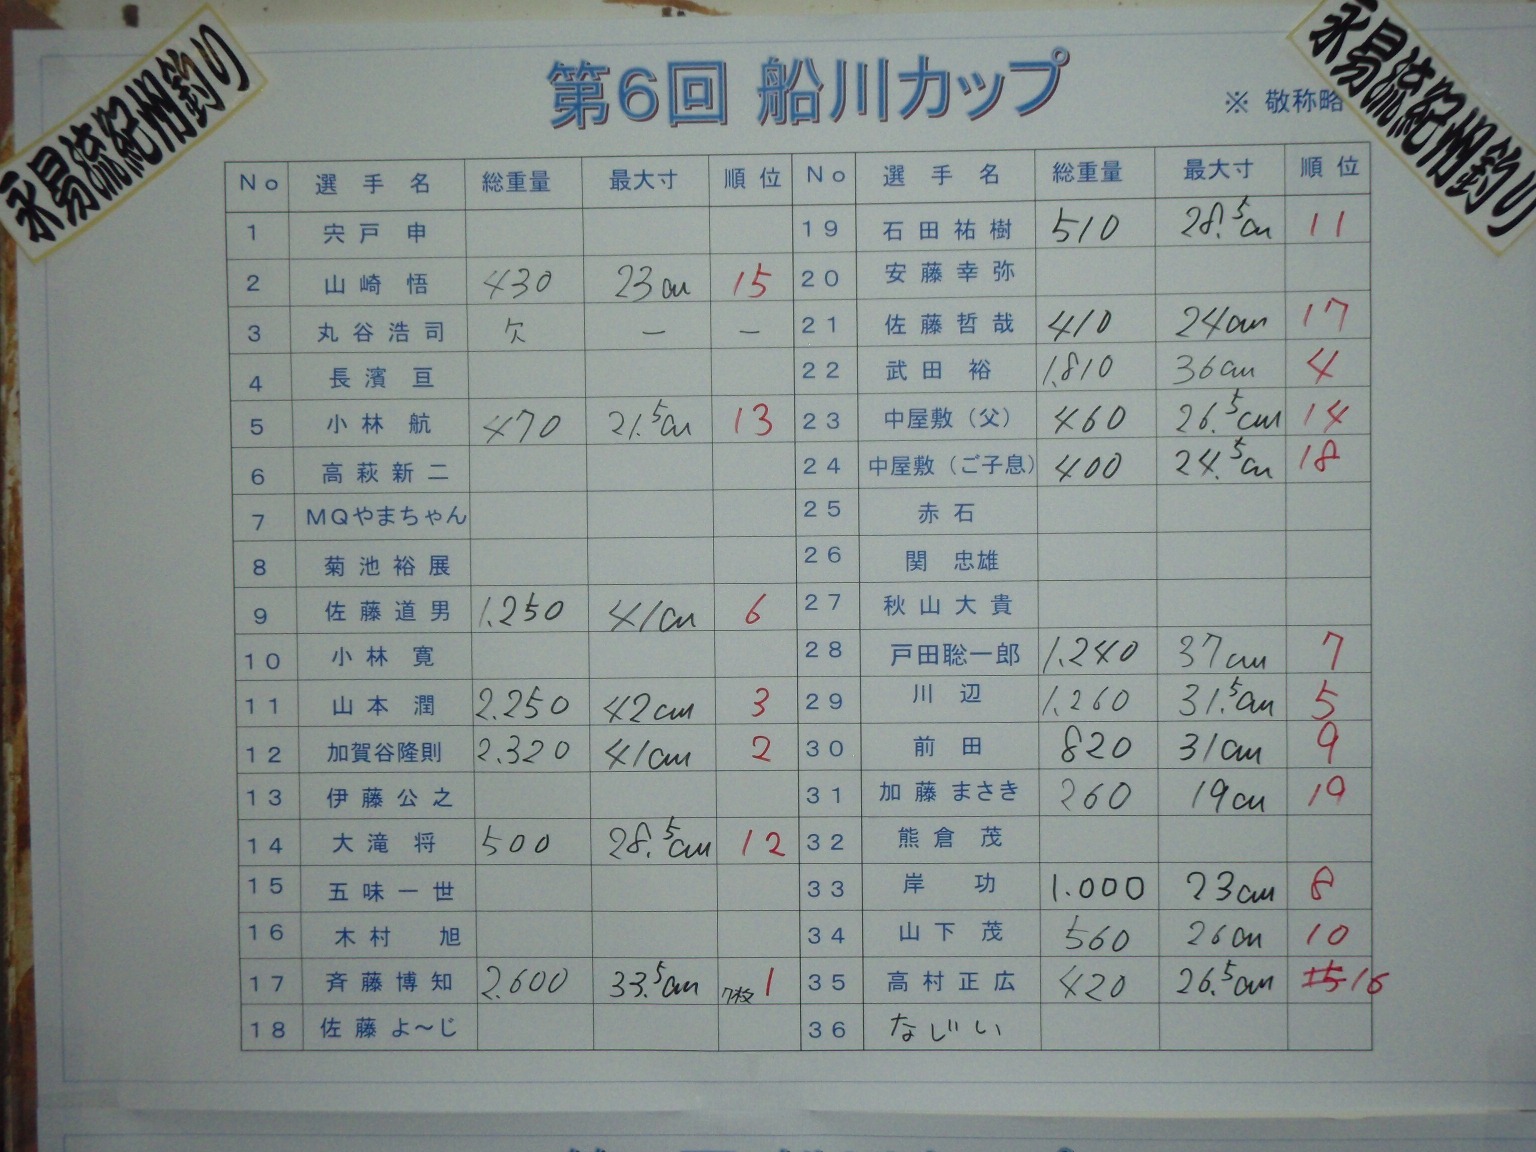 永易流紀州釣り
永易流紀州釣り
第6回 船川カップ
※ 敬称略
No 選手名 総重量 最大寸 順位 No 選手名 総重量 最大寸 順位
1 宍戸 申 19 石田祐樹 510 28.5cm 11
2 山崎 悟 430 23cm 15 20 安藤幸弥
3 丸谷浩司 欠 ー ー 21 佐藤哲哉 410 24cm 17
4 長濱 亘 22 武田 裕 1.810 36cm 4
5 小林 航 470 21.5cm 13 23 中屋敷（父） 460 26.5cm 14
6 高萩新二 24 中屋敷（ご子息） 400 24.5cm 18
7 MQやまちゃん 25 赤石
8 菊池裕展 26 関 忠雄
9 佐藤道男 1.250 41cm 6 27 秋山大貴
10 小林 寛 28 戸田聡一郎 1.240 37cm 7
11 山本 潤 2.250 42cm 3 29 川辺 1.260 31.5cm 5
12 加賀谷隆則 2.320 41cm 2 30 前田 820 31cm 9
13 伊藤公之 31 加藤まさき 260 19cm 19
14 大滝 将 500 28.5cm 12 32 熊倉 茂
15 五味一世 33 岸 功 1.000 23cm 8
16 木村 旭 34 山下 茂 560 26cm 10
17 斉藤博知 2.600 33.5cm 7枚 1 35 高村正広 420 26.5cm 15 16
18 佐藤よ～じ 36 なじい